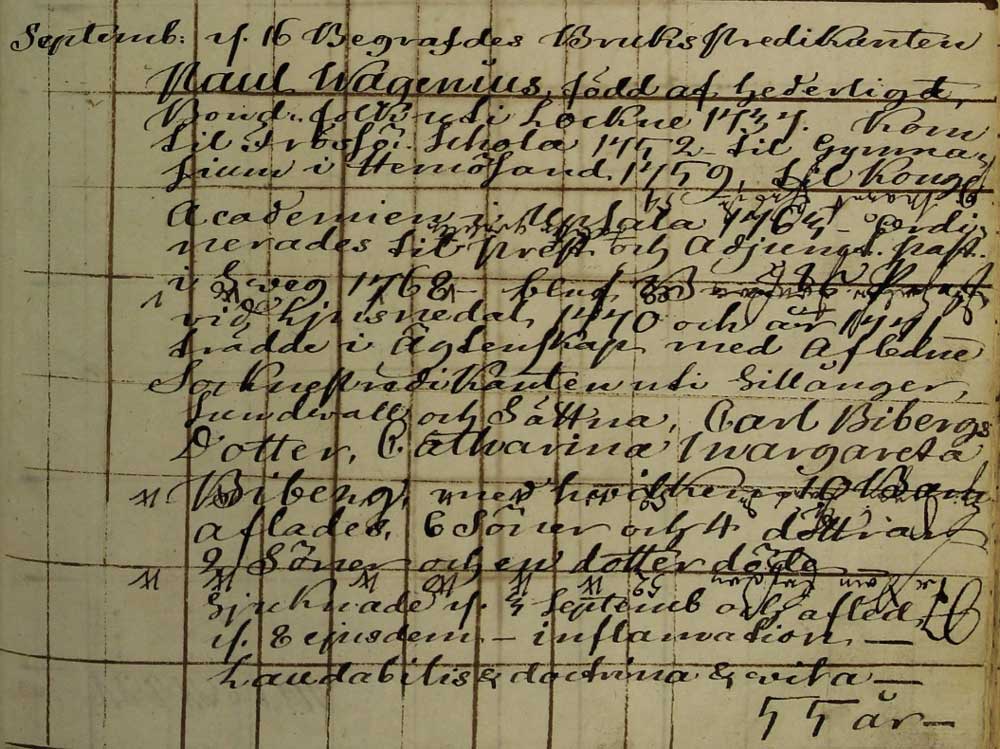 Septemb: d. 16 Begrafdes Bruks Predikanten
Paul Wagenius, född af hederligt
Bond-folk uti Lockne 1737. Kom
til Frösö Schola 1752 - til Gymna-
sium i Hernösand 1759, til Kongl.
Academien i Upsala 1764 - ordi-
nerades til Präst och Adjunct. Past.
i Sweg 1768 - blef
vid Ljusnedal 1770 och år
trädde i Ägtenskap med Afledne
Sockne Predikanten uti Sillånger,
Sundwall och Sättna, Carl Bibergs
Dotter, Catharina Margareta
Biberg, med hvilken 10 Barn
aflades, 6 Söner och 4 döttrar
2 Söner och en dotter döde
Sjuknade d. Septemb och afled
d. 8 ejusdem - inflamation -
Laudabilis & doctrina & vita -
55 år -